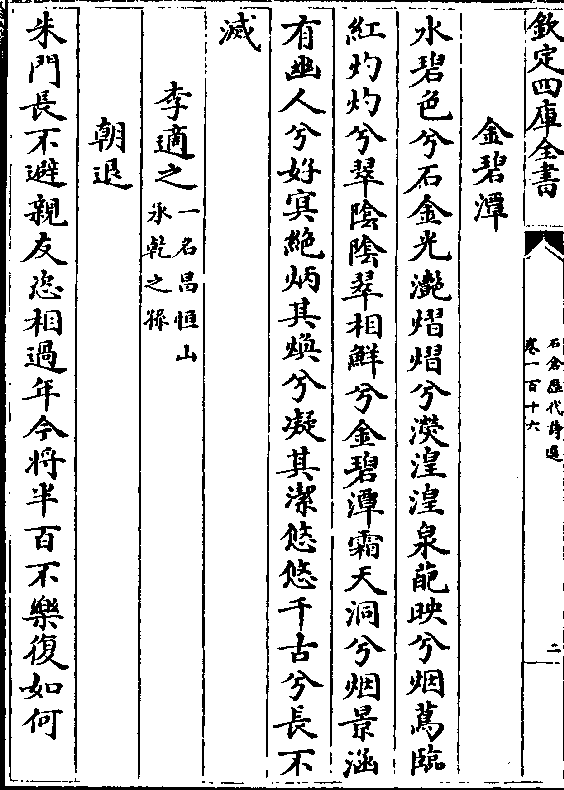 欽定四庫全書
石倉歷代詩選
卷一百十六
二
金碧潭
水碧色兮石金光灩熠熠兮濙湟湟泉葩映兮烟蔦臨
紅灼灼兮翠陰陰翠相鮮兮金碧潭霜天洞兮烟景涵
有幽人兮好冥絶炳其煥兮凝其潔悠悠千古兮長不
滅
李適之
一名昌恒山
承乾之孫
朝退
朱門長不避親友恣相過年今將半百不樂復如何